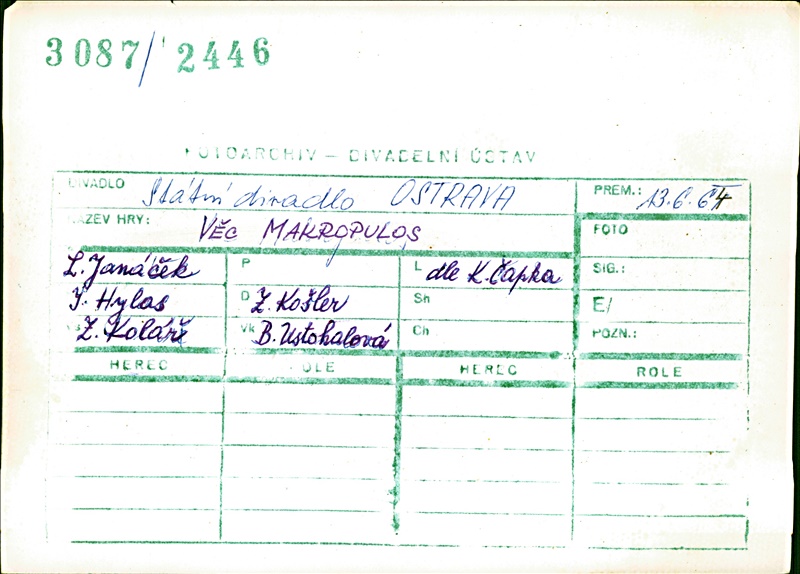 3087/ 2446
FOTOARCHIV – DIVADELNÍ ÚSTAV
DIVADLO Státní divadlo OSTRAVA PREM.: 13.6.64
NÁZEV HRY: VĚC MAKROPULOS FOTO
L. Janáček P L dle K. Čapka SIG.:
J. Hylas D Z. Košler Sh E/
Z. Kolář Vk B. Ustohalová Ch POZN.:
HEREC ROLE HEREC ROLE